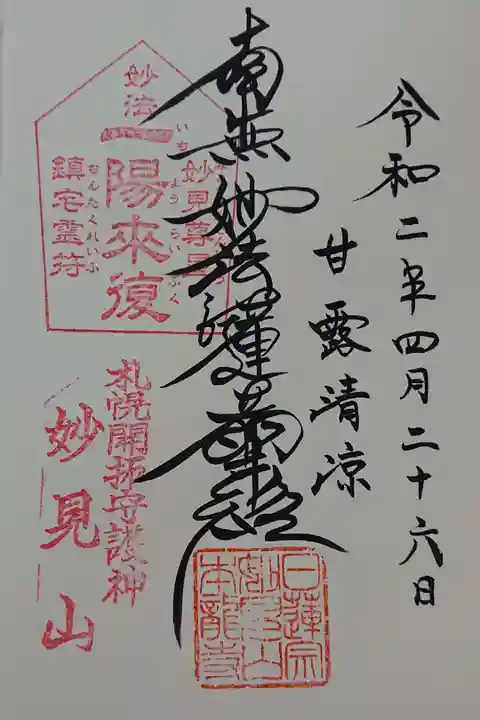 令和二年四月二十六日
甘露清涼
南無妙法蓮華経
妙法
一陽來復
いちようらいふく
妙見尊星
鎮宅霊符
ちんたくれいふ
札幌開拓守護神
妙見山
日蓮宗
妙見山
本龍寺